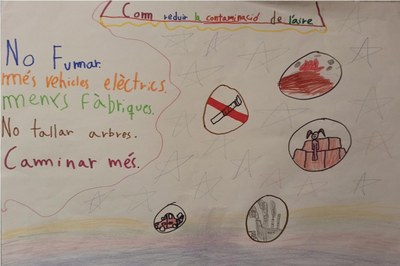 Com reduir la contaminació de l'aire
No Fumar.
més vehicles elèctrics.
menys Fàbriques.
No tallar arbres.
Caminar més.